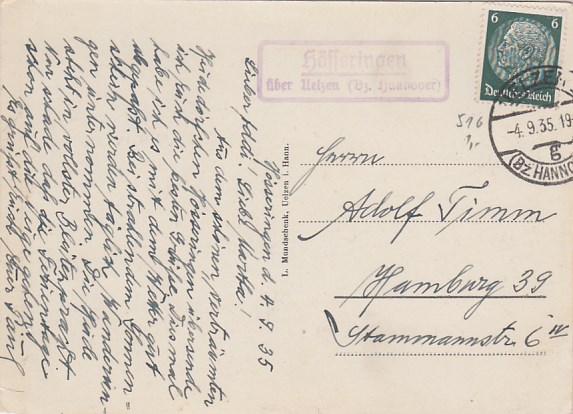 Hösseringen
über Uelzen (Bz. Hannover)
6 6
Deutsches Reich
UELZEN
-4.9.35.19-
g
(BZ HANNO
516
L. Mundschenk, Uelzen i. Hann.
Herrn
Adolf Timm
Hamburg 39
Stammannstr. 6 IV
Hösseringen d. 4.9.35
Lieber Adi! Liebe Martha!
Aus dem schönen, verträumten
Heidedörfchen Hösseringen übersende
ich Euch die besten Grüße. Diesmal
habe ich es mit dem Wetter gut
abgepaßt. Bei strahlendem Sonnen=
schein werden täglich Wanderun=
gen unternommen. Die Heide
steht in vollster Blütenpracht.
Nur schade daß die Ferientage
schon auf die Neige gehen.
Es grüßt Euch, Euer